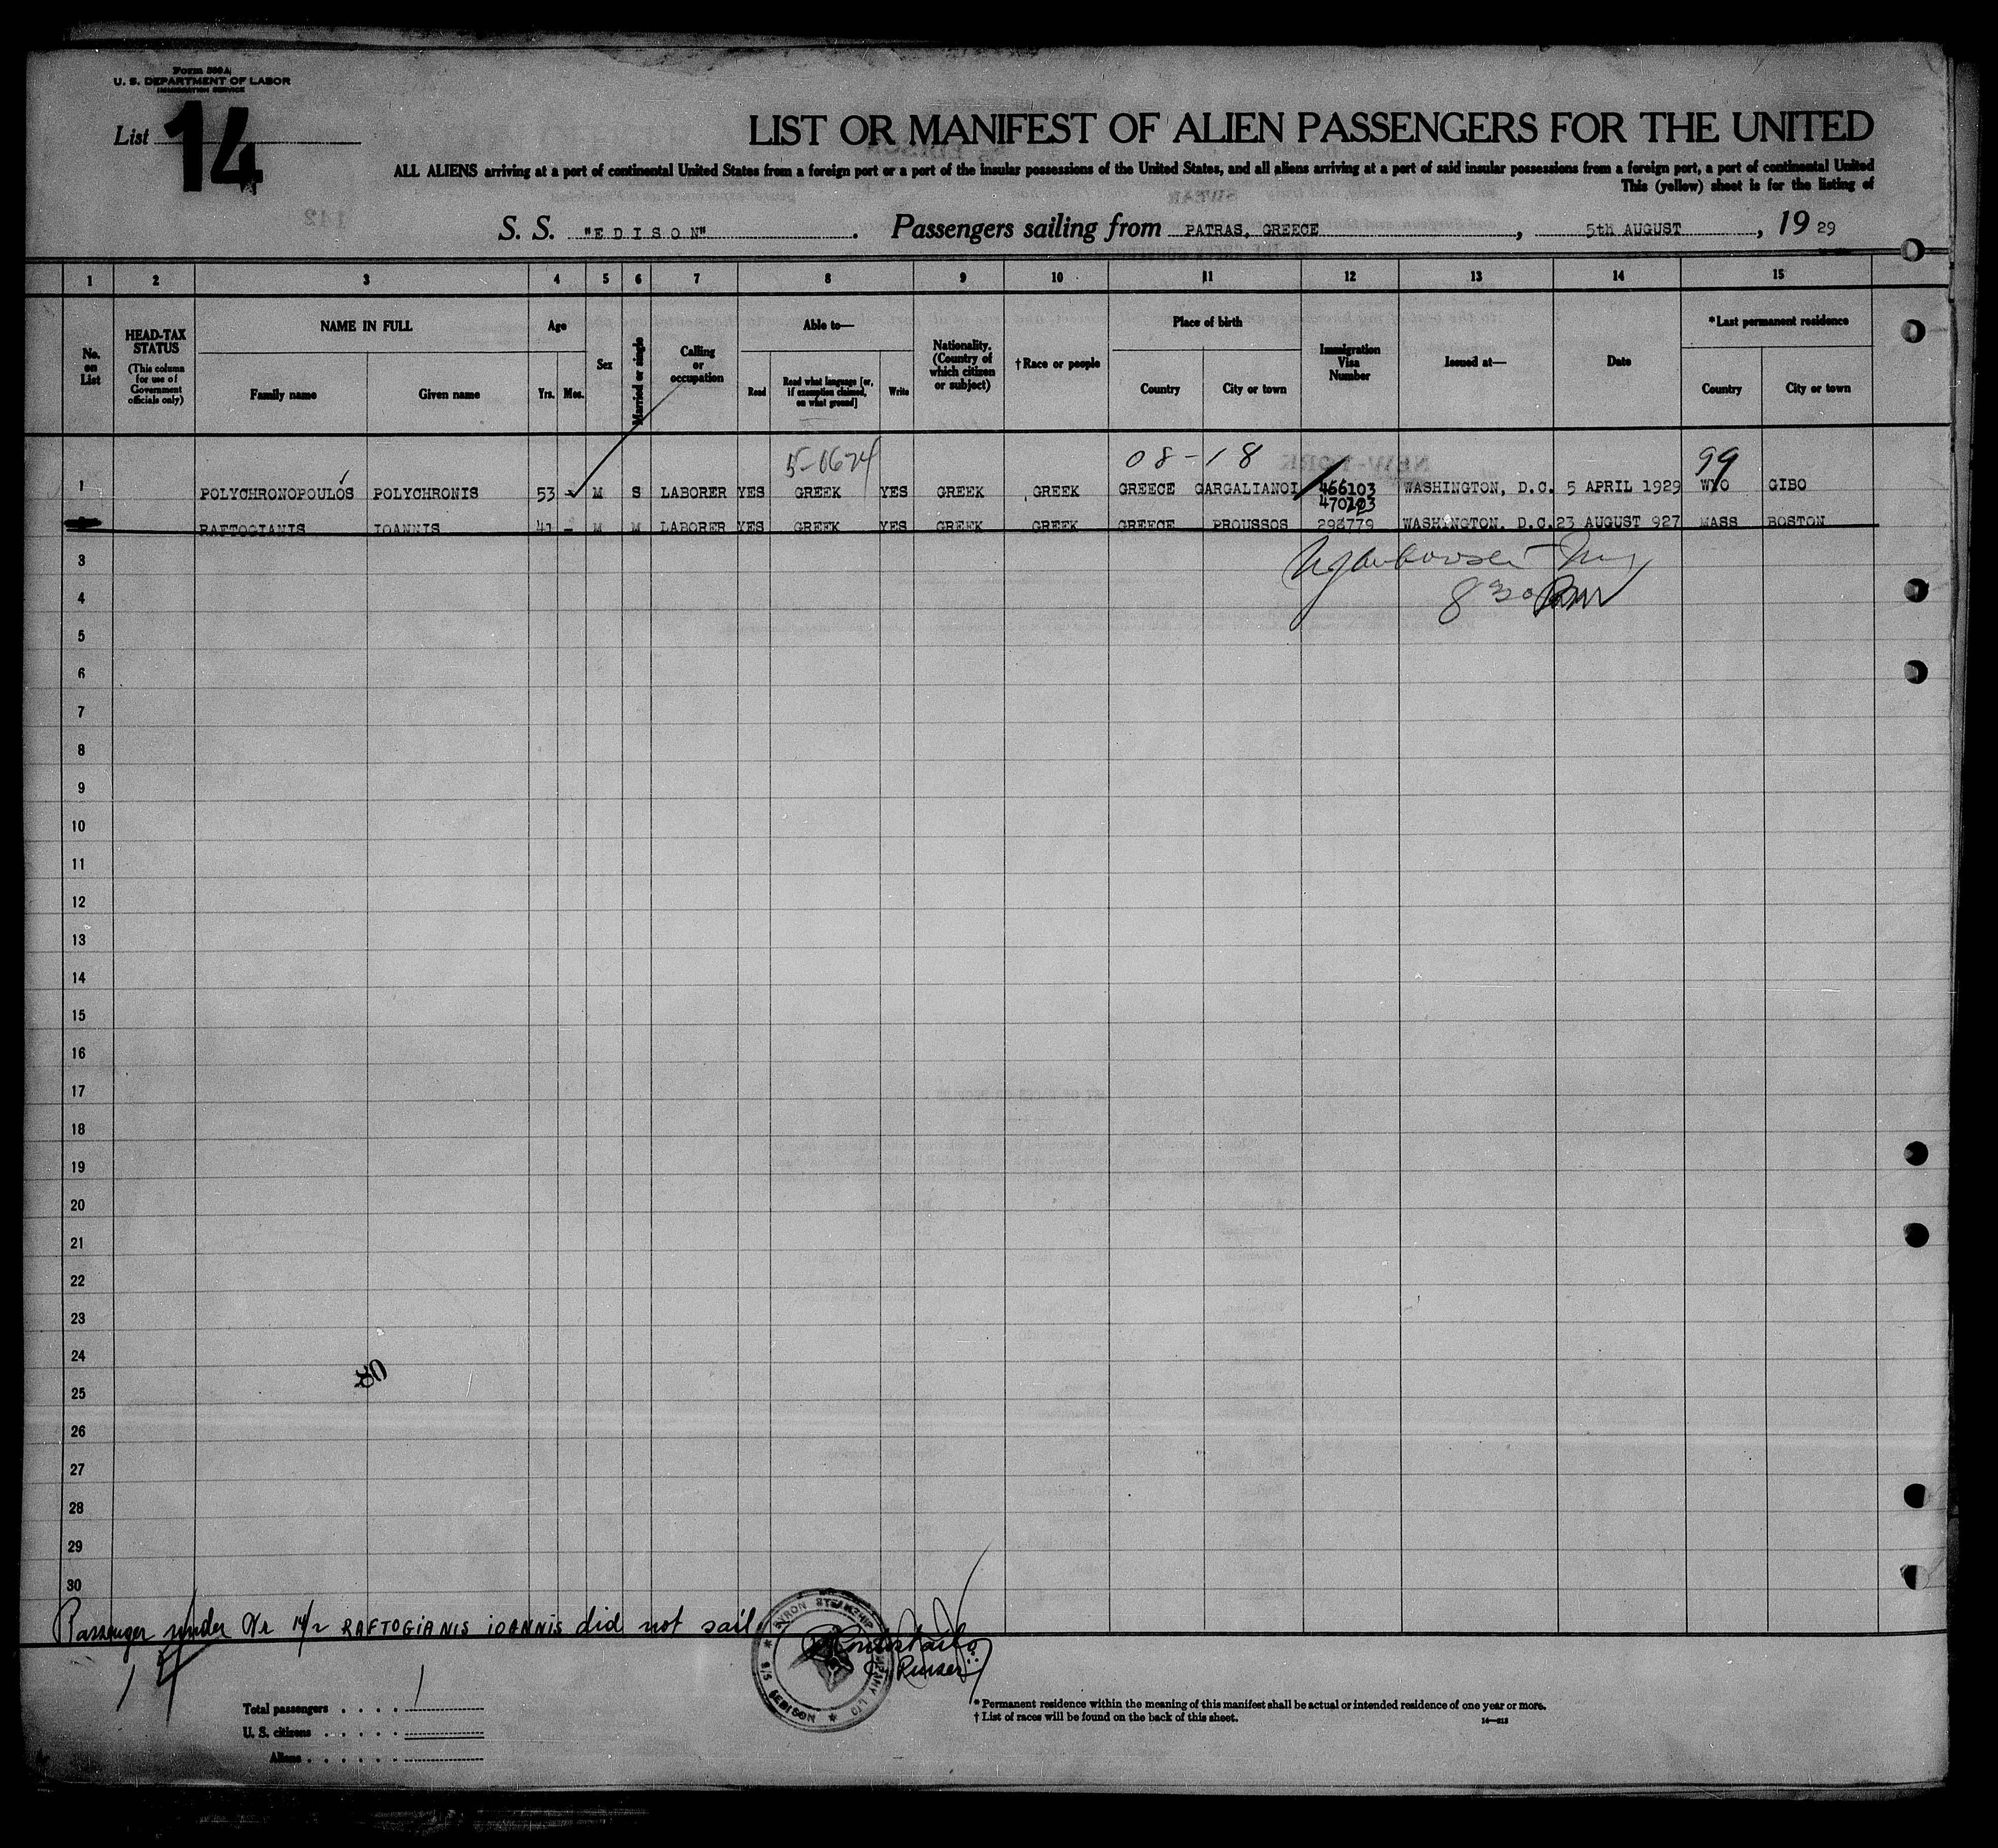 Form 500 A
U. S. DEPARTMENT OF LABOR
IMMIGRATION SERVICE
List 14
LIST OR MANIFEST OF ALIEN PASSENGERS FOR THE UNITED
ALL ALIENS arriving at a port of continental United States from a foreign port or a port of the insular possessions of the United States, and all aliens arriving at a port of said insular possessions from a foreign port, a port of continental United
This (yellow) sheet is for the listing of
S. S. "EDISON". Passengers sailing from PATRAS, GREECE, 5th AUGUST, 19 29
1 2 3 4 5 6 7 8 9 10 11 12 13 14 15
No. on List
HEAD-TAX STATUS (This column for use of Government officials only)
NAME IN FULL
Family name Given name
Age
Yrs. Mos.
Sex
Married or single
Calling or occupation
Able to—
Read Read what language [or, if exemption claimed, on what ground] Write
Nationality. (Country of which citizen or subject)
†Race or people
Place of birth
Country City or town
Immigration Visa Number
Issued at—
Date
*Last permanent residence
Country City or town
5-0674 08-18 99
1 POLYCHRONOPOULOS POLYCHRONIS 53 - M S LABORER YES GREEK YES GREEK GREEK GREECE GARGALIANOI 466103 WASHINGTON, D.C. 5 APRIL 1929 WYO GIBO
470123
RAFTOGIANIS IOANNIS 41 - M M LABORER YES GREEK YES GREEK GREEK GREECE PROUSSOS 293779 WASHINGTON. D.C. 23 AUGUST 927 MASS BOSTON
3
4 8 30
5
6
7
8
9
10
11
12
13
14
15
16
17
18
19
20
21
22
23
24
25
26
27
28
29
30
Passenger under Nr 14/2 RAFTOGIANIS IOANNIS did not sail.
BYRON STEAMSHIP COMPANY LTD * S/S EDISON *
Purser
Total passengers . . . . 1
U. S. citizens . . . . .
Aliens . . . . . .
* Permanent residence within the meaning of this manifest shall be actual or intended residence of one year or more.
† List of races will be found on the back of this sheet.